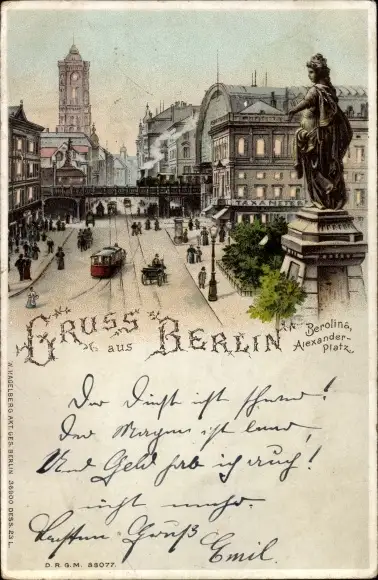 TAXAMETER
GRUSS aus BERLIN
Berolina,
Alexander-
platz.
Der Durst ist schwer!
Der Magen ist leer,
Und Geld hab ich auch!
nicht mehr.
Besten Gruß
Emil.
D. R. G. M. 88077.
W. HAGELBERG AKT. GES. BERLIN